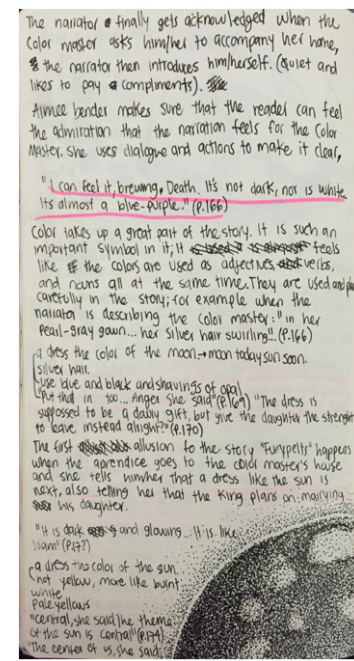 The narrator finally gets acknowledged when the
Color master asks him/her to accompany her home,
the narrator then introduces him/herself. (Quiet and
likes to pay compliments).
Aimee bender makes sure that the reader can feel
the admiration that the narration feels for the Color
Master. She uses dialogue and actions to make it clear,
"I can feel it, brewing. Death. It's not dark, nor is white
Its almost a blue-purple." (P.166)
Color takes up a great part of the story. It is such an
important symbol in it; It feels
like the colors are used as adjectives, verbs,
and nouns all at the same time. They are used and
carefully in the story; for example when the
narrator is describing the color master: "in her
Pearl-gray gown... her silver hair swirling". (P.166)
a dress the color of the moon → moon today sun soon.
silver hair.
use blue and black and shavings of opal
"Put that in too... Anger she said" (P.169) "The dress is
suppossed to be a daily gift, but give the daughter the strenght
to leave instead alright?" (P.170)
The first allusion to the story "Furypelts" happens
when the aprendice goes to the color master's house
and she tells him/her that a dress like the sun is
next, also telling her that the King plans on marrying
his daughter.
"It is dark and glowing... It is like
loam" (P.172)
a dress the color of the sun.
not yellow, more like burnt
white
pale yellows
"central, she said. The theme
of the sun is central" (P.174)
"The center of us, she said.